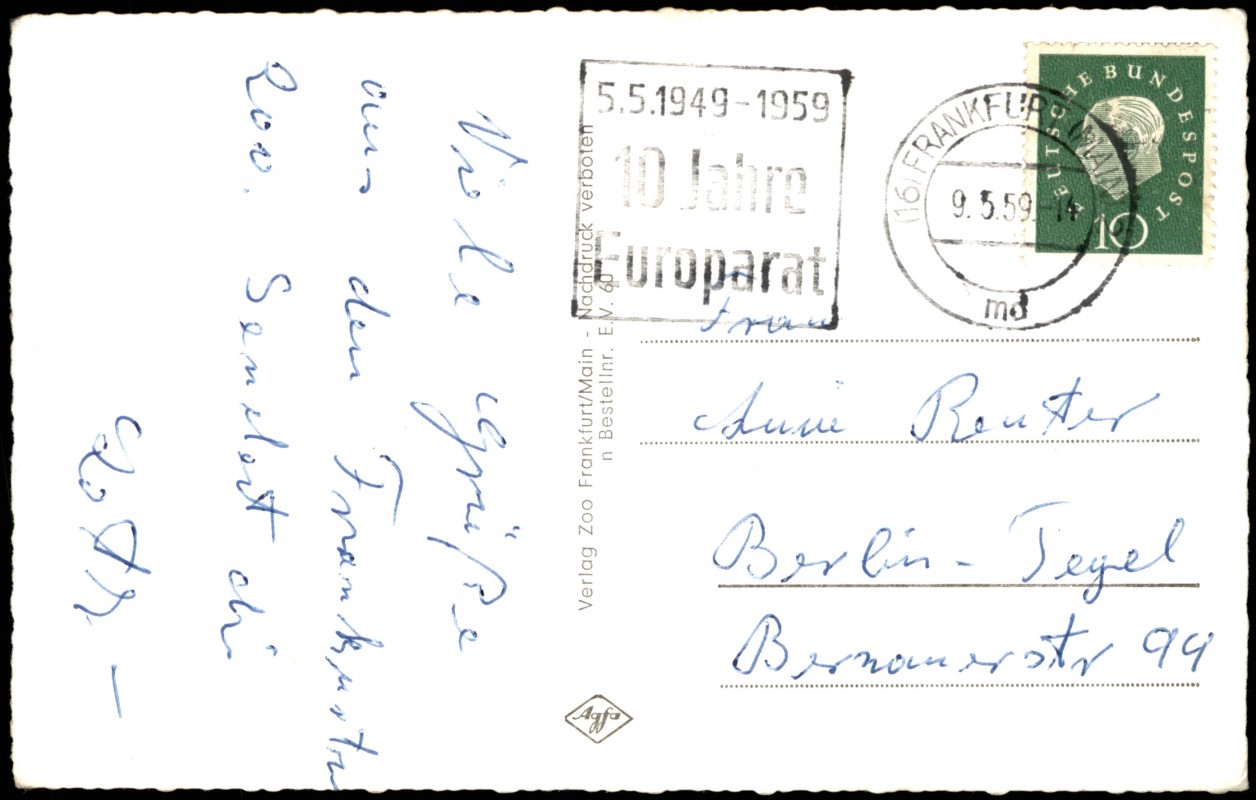 Viele Grüße
aus dem Frankfurter
Zoo. Sendet dir
5.5.1949-1959
10 Jahre
Europarat
(16) FRANKFURT (MAIN)
9.5.59.-14
md
DEUTSCHE BUNDESPOST
10
Verlag Zoo Frankfurt/Main - Nachdruck verboten
n Bestellnr. E.V. 60
Frau
Reuter
Berlin-Tegel
Bernauerstr 99
Agfa